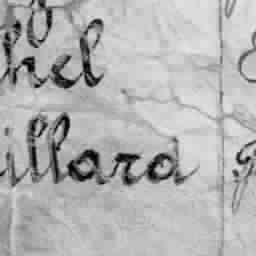 hel
illard